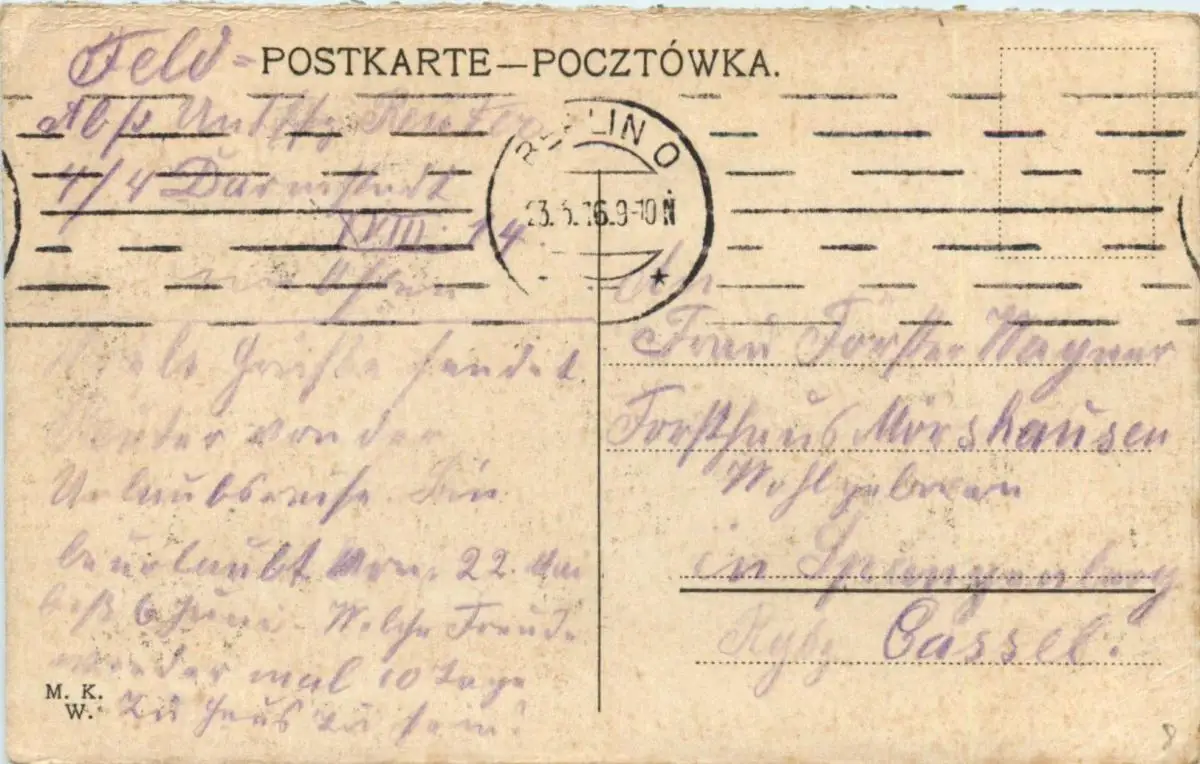 Feld-
POSTKARTE—POCZTÓWKA.
Abs. Untffz Reuter
4/4 Darmstadt
XVIII. 14.
BERLIN O
23.5.16.9-10 N
Viele Grüße sendet
Reuter von der
Urlaubsreise. Bin
beurlaubt vom 22. Mai
bis 6 Juni. Welche Freude
wieder mal 10 Tage
zu Haus zu sein!
M. K.
W.
An
Frau Förster Wagner
Forsthaus Mörshausen
Wohlgeboren
in Spangenberg
Rgbz Cassel.